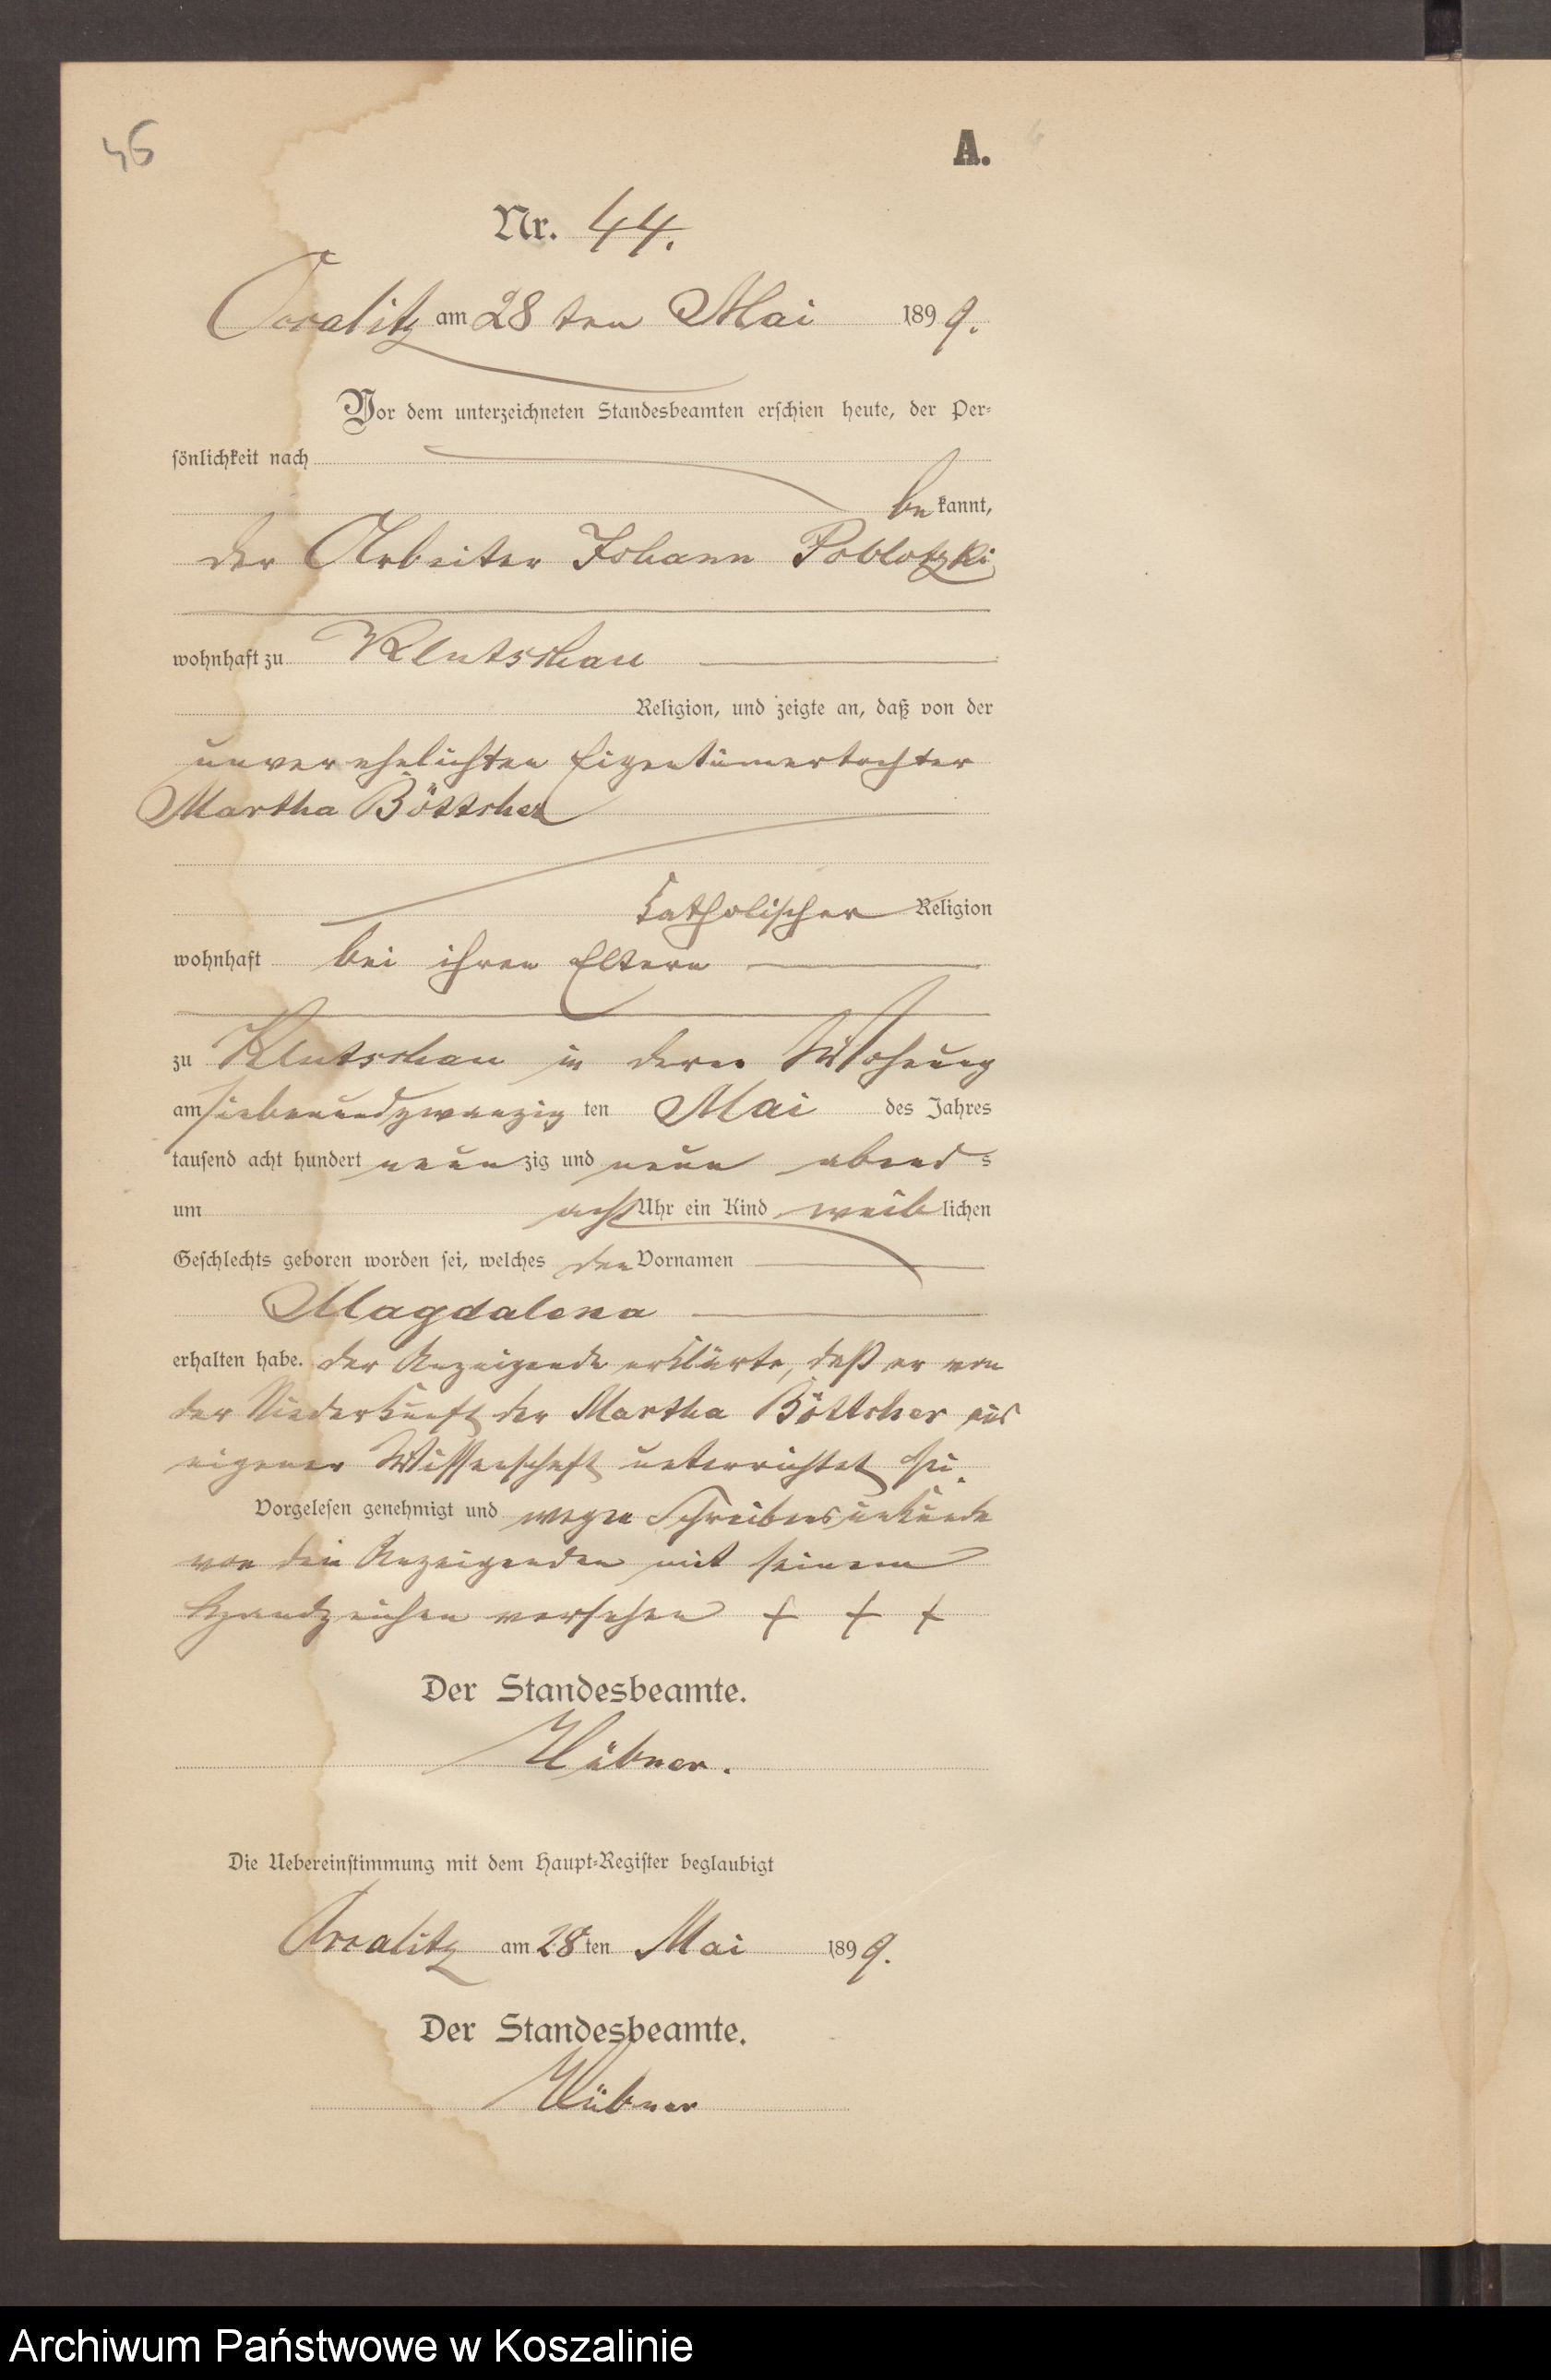 46
A.
Nr. 44.
am 28 ten Mai 1899.
Vor dem unterzeichneten Standesbeamten erschien heute, der Per-
sönlichkeit nach
bekannt,
der Arbeiter Johann Poblotzki
wohnhaft zu Klutschau
Religion, und zeigte an, daß von der
unverehelichten Eigentümertochter
Martha Böttcher
katholischer Religion
wohnhaft bei ihren Eltern
zu Klutschau in deren Wohnung
am siebenundzwanzigten Mai des Jahres
tausend acht hundert neunzig und neun abends
um acht Uhr ein Kind weiblichen
Geschlechts geboren worden sei, welches den Vornamen
Magdalena
erhalten habe. Der Anzeigende erklärte, daß er von
der Niederkunft der Martha Böttcher aus
eigener Wissenschaft unterrichtet sei.
Vorgelesen genehmigt und wegen Schreibensunkunde
von dem Anzeigenden mit seinem
Handzeichen versehen + + +
Der Standesbeamte.
Hübner.
Die Uebereinstimmung mit dem Haupt-Register beglaubigt
am 28ten Mai 1899.
Der Standesbeamte.
Hübner
Archiwum Państwowe w Koszalinie